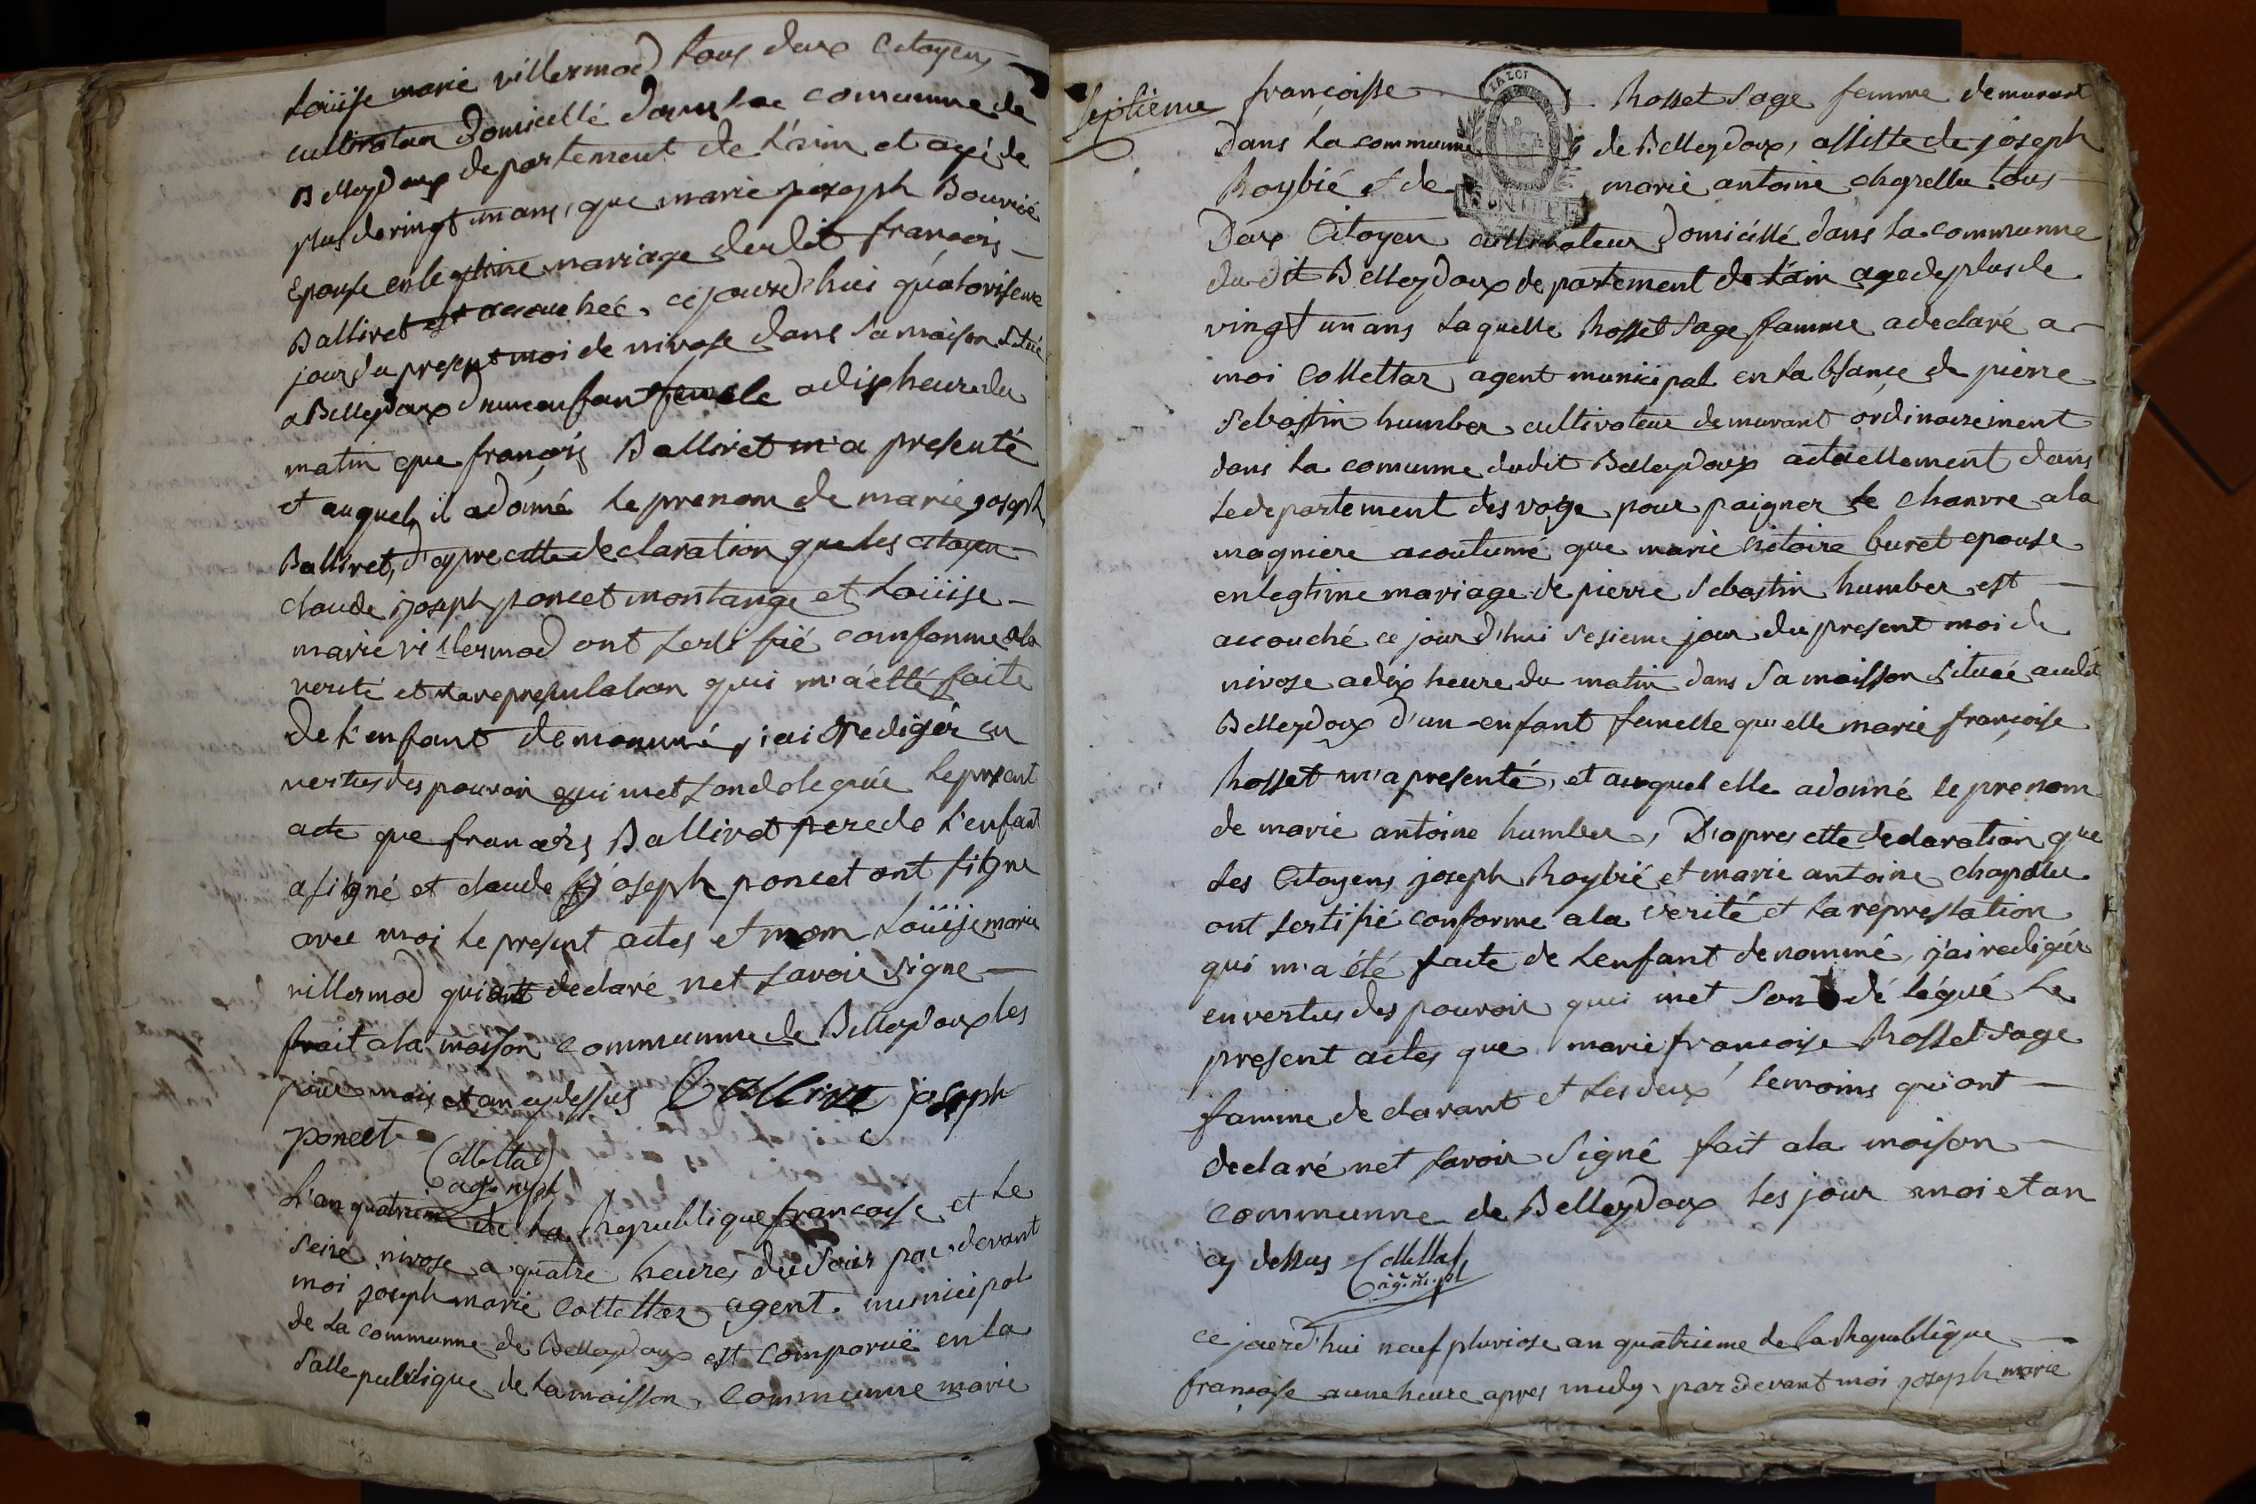 Loüise marie villermod tous deux Citoyens
cultivateur domicillé dans la comunune de
Belleydoux departement de L'ain et agé de
plus de vingt un ans, que marie joseph Bouvié
Epouse en legitime mariage du dit françois
Balliret est accouchée, ce jourd'hui quatorsieme
jour du present moi de nivose dans sa maison situé
a Belleydoux d'un enfant femele a dix heure du
matin que françois Balliret m'a presenté
et auquel il a donné le prenom de marie joseph
Balliret, d'apre cette declaration que les citoyen
claude joseph poncet montange et Loüise
marie villermod ont sertifié comforme a la
verité et la representation qui m'a etté faite
de l'enfant denommé, j'ai rediger en
vertus des pouvoir qui met sond delegüé le present
acte que françois Balliret pere de l'enfant
a signé et claude joseph poncet ont signe
avec moi le present actes et non Loüise marie
villermod qui ont declaré net savoir signe
frait a la maison communne de Belleydoux les
jour mois et an cy dessus Ballivet joseph
poncet
Collettaz
ag. m.pl
L'an quatrieme de la Republique françoise et le
seise nivose a quatre heures du soir par devant
moi joseph marie Collettaz agent municipal
de la communne de Belleydoux est comparuë en la
salle publique de la maisson communne marie
Septieme françoisse Rosset sage femme demurant
LA LOI
dans la communne de Belleydoux, assitte de joseph
Roybié et de marie antoine chapellu tous
deux Citoyen cultivateur domicillé dans la communne
du dit Belleydoux departement de L'ain age de plus de
vingt un ans laquelle Rosset sage famme a declaré a
moi Collettaz agent municipal en l'absançe de pierre
Sebastin humber cultivateur demurant ordinairement
dans la comunne dudit Belleydoux actuellement dans
le departement des voge pour paigner le chanvre a la
magniere acoutumé que marie victoire buret epouse
en legtime mariage de pierre Sebastin humber est
accouché ce jour d'hui sesieme jour du present moi de
nivose a dix heure du matin dans sa maisson situeé audit
Belleydoux d'un enfant femelle qu'elle marie françoise
Rosset m'a presenté, et auquel elle a donné le prenom
de marie antoine humber, D'apres ette declaration que
les Citoyens joseph Roybié et marie antoine chapellu
ont sertifié conforme a la verité et la represtation
qui m'a été faite de l'enfant denommé, j'ai rediger
en vertus des pouvoir qui met son délégué le
present actes que marie françoise Rosset sage
famme declarant et les deux temoins qui ont
declaré net savoir signé fait a la maison
communne de Belleydoux les jour moi et an
cy dessus Collettaz
ag. m.pl
ce jourd'hui neuf pluviose an quatrieme de la Republique
françoise a une heure apres midy, par devant moi joseph marie